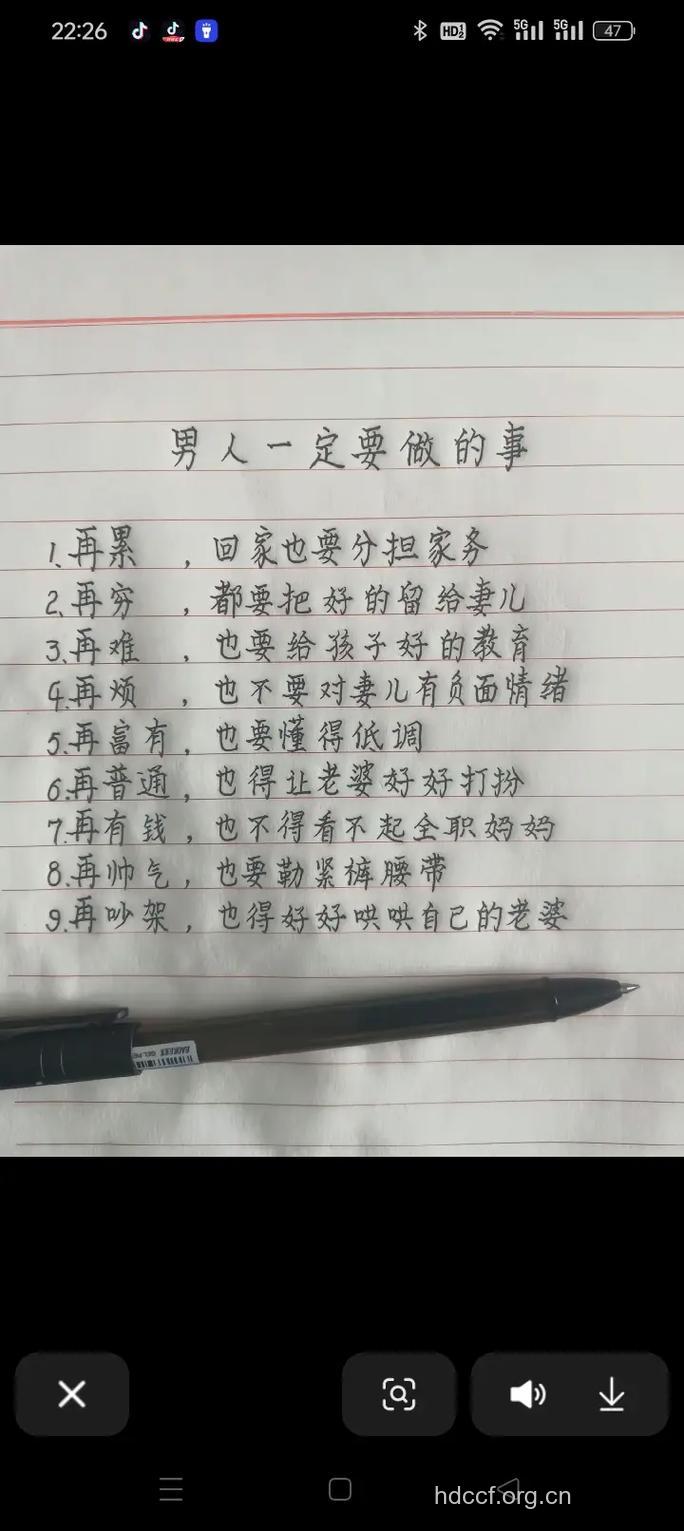 22:26
HD2
5G
5G
47
男人一定要做的事
1.再累，回家也要分担家务
2.再穷，都要把好的留给妻儿
3.再难，也要给孩子好的教育
4.再烦，也不要对妻儿有负面情绪
5.再富有，也要懂得低调
6.再普通，也得让老婆好好打扮
7.再有钱，也不得看不起全职妈妈
8.再帅气，也要勒紧裤腰带
9.再吵架，也得好好哄哄自己的老婆
hdccf.org.cn